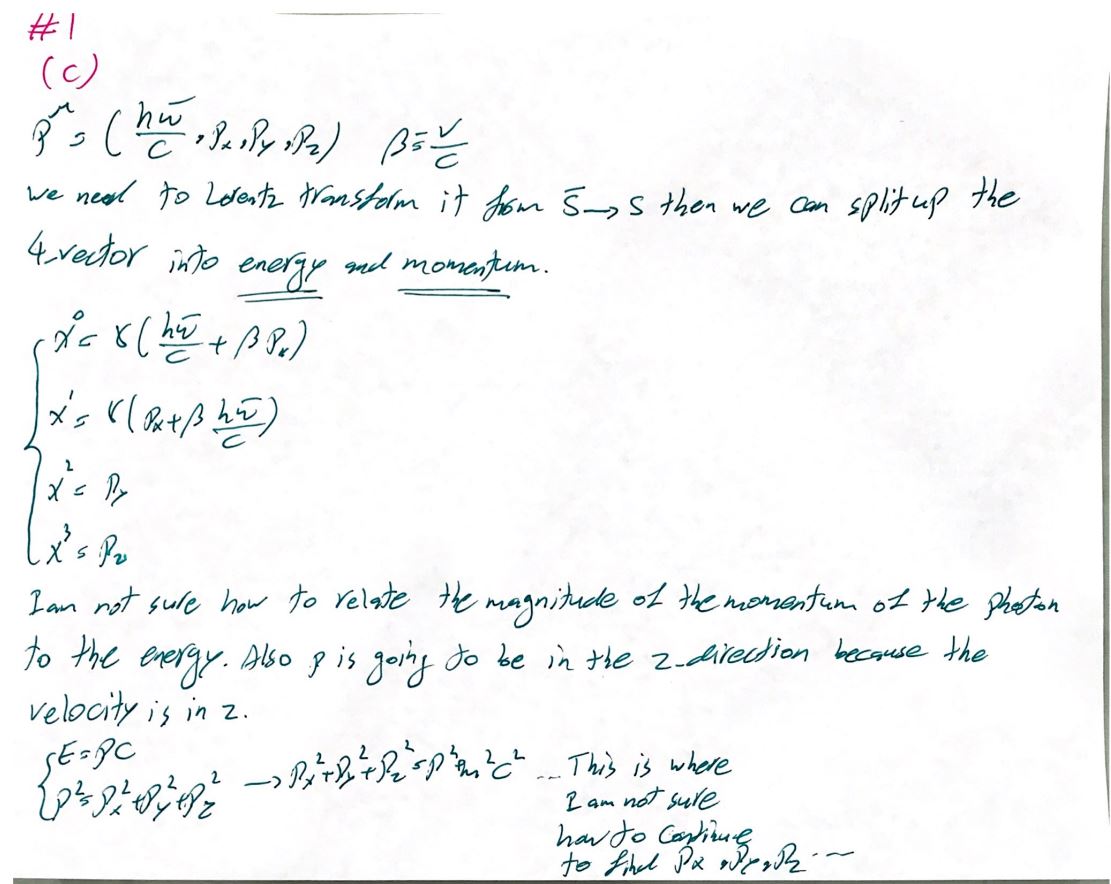 #1
(c)
p^μ = (ħω̄/c, Px, Py, Pz)   β = v/c
we need to Lorentz transform it from S̄→S then we can split up the
4-vector into energy and momentum.
x⁰ = γ(ħω̄/c + βPx)
x¹ = γ(Px + β ħω̄/c)
x² = Py
x³ = Pz
I am not sure how to relate the magnitude of the momentum of the photon
to the energy. Also p is going to be in the z-direction because the
velocity is in z.
E = PC
P² = Px² + Py² + Pz² → Px² + Py² + Pz² = P² m²c² ... This is where
I am not sure
how to continue
to find Px, Py, Pz ...